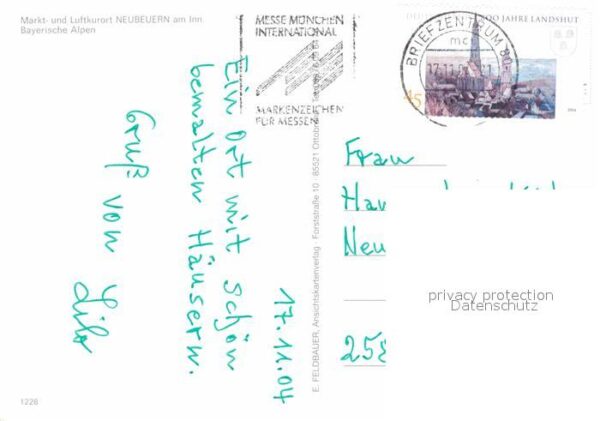 Markt- und Luftkurort NEUBEUERN am Inn
Bayerische Alpen
17.11.04
Ein Ort mit schön
bemalten Häusern.
Gruß von Lilo
1226
E. FELDBAUER, Ansichtskartenverlag Forststraße 10 · 85521 Ottobr
MESSE MÜNCHEN
INTERNATIONAL
MARKENZEICHEN
FÜR MESSEN
BRIEFZENTRUM 80
mc
17.11.
800 JAHRE LANDSHUT
45
Frau
Neu
255
privacy protection
Datenschutz